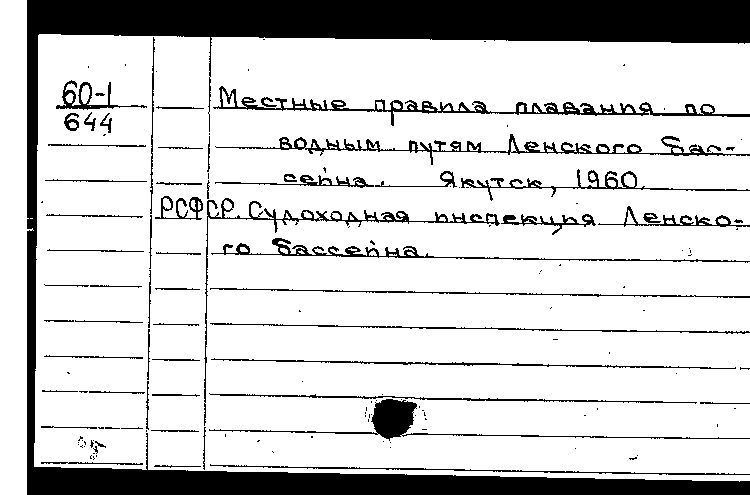 60-1
644
Местные правила плавания по
водным путям Ленского бас-
сейна. Якутск, 1960.
РСФСР. Судоходная инспекция Ленско-
го бассейна.